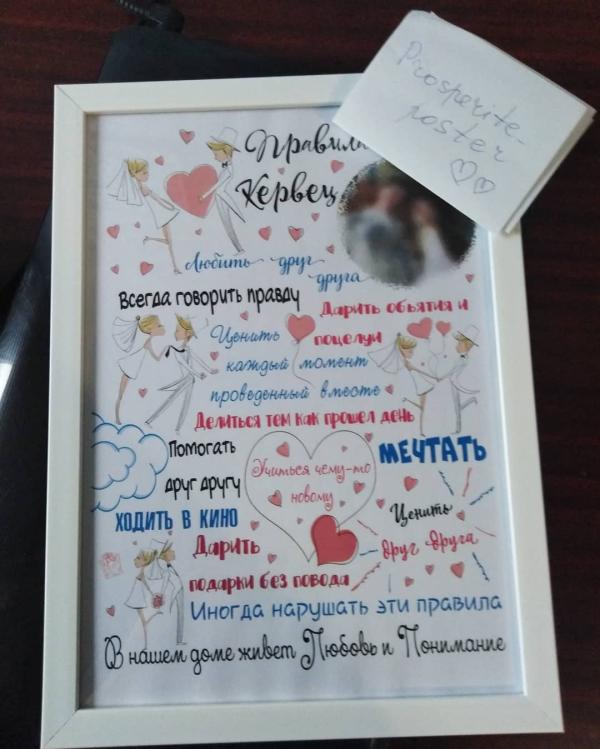 Prosperite-
poster
Правила
Кервец
Любить друг
друга
Всегда говорить правду
Дарить объятия и
поцелуи
Ценить
каждый момент
проведенный вместе
Делиться тем как прошел день
Помогать
друг другу
Учиться чему-то
новому
МЕЧТАТЬ
ХОДИТЬ В КИНО
Ценить
друг друга
Дарить
подарки без повода
Иногда нарушать эти правила
В нашем доме живет Любовь и Понимание